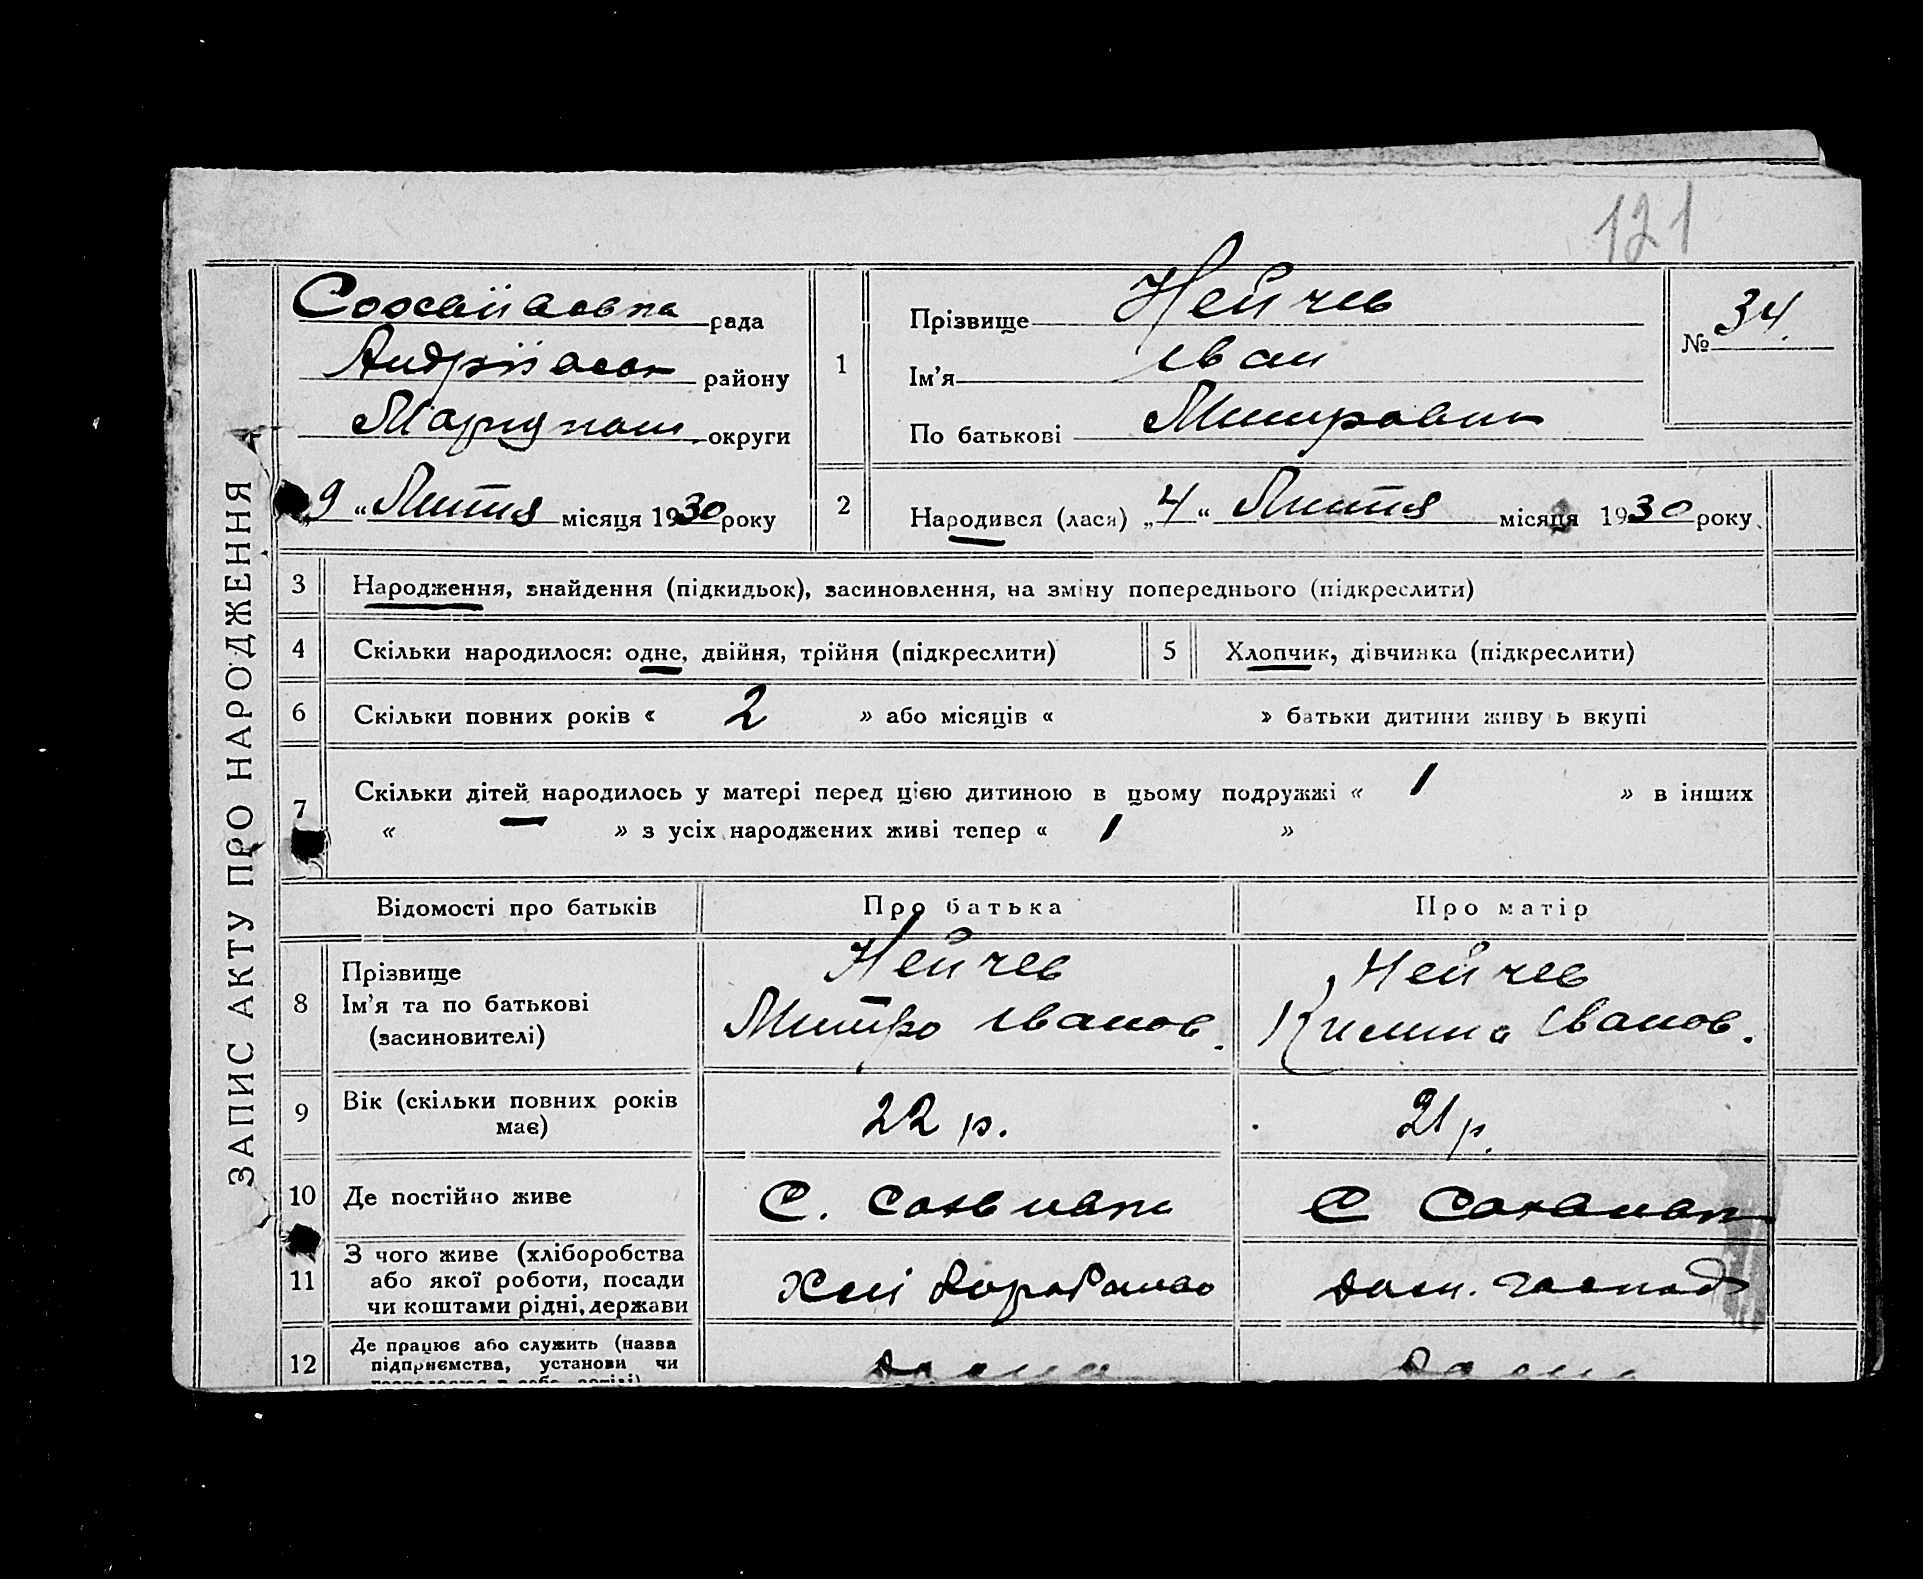 121
ЗАПИС АКТУ ПРО НАРОДЖЕННЯ
рада
Андріївськ району
Маріупольськ. округи
„9“ Липня місяця 1930 року
1
Прізвище Нейчев
Ім'я Іван
По батькові Митрович
№ 34
2
Народився (лася) „4“ Липня місяця 1930 року
3 Народження, знайдення (підкидьок), засиновлення, на зміну попереднього (підкреслити)
4 Скільки народилося: одне, двійня, трійня (підкреслити)
5 Хлопчик, дівчинка (підкреслити)
6 Скільки повних років « 2 » або місяців « » батьки дитини живуть вкупі
7 Скільки дітей народилось у матері перед цією дитиною в цьому подружжі « 1 » в інших
« — » з усіх народжених живі тепер « 1 »
Відомості про батьків Про батька Про матір
8
Прізвище
Ім'я та по батькові
(засиновителі)
Нейчев
Митро Іванов.
Нейчев
Іванов.
9 Вік (скільки повних років
має)
22 р. 21 р.
10 Де постійно живе С. С.
11
З чого живе (хліборобства
або якої роботи, посади
чи коштами рідні, держави
Хліборобство дом. господ
12
Де працює або служить (назва
підприємства, установи чи